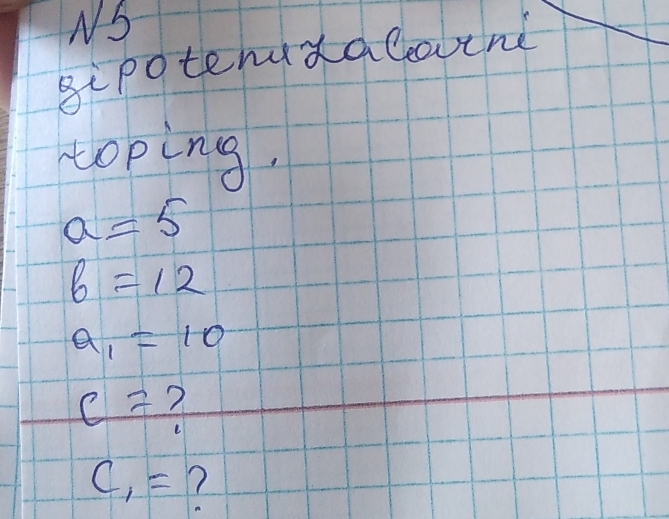 N5
gipotenuzalarni
toping.
a = 5
b = 12
a₁ = 10
c = ?
c₁ = ?